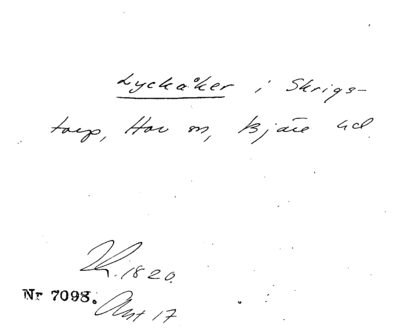 Lyckåker i Skrigs-
torp, Hov sn, Bjäre hd
R. 1820.
Nr 7098. Ant 17